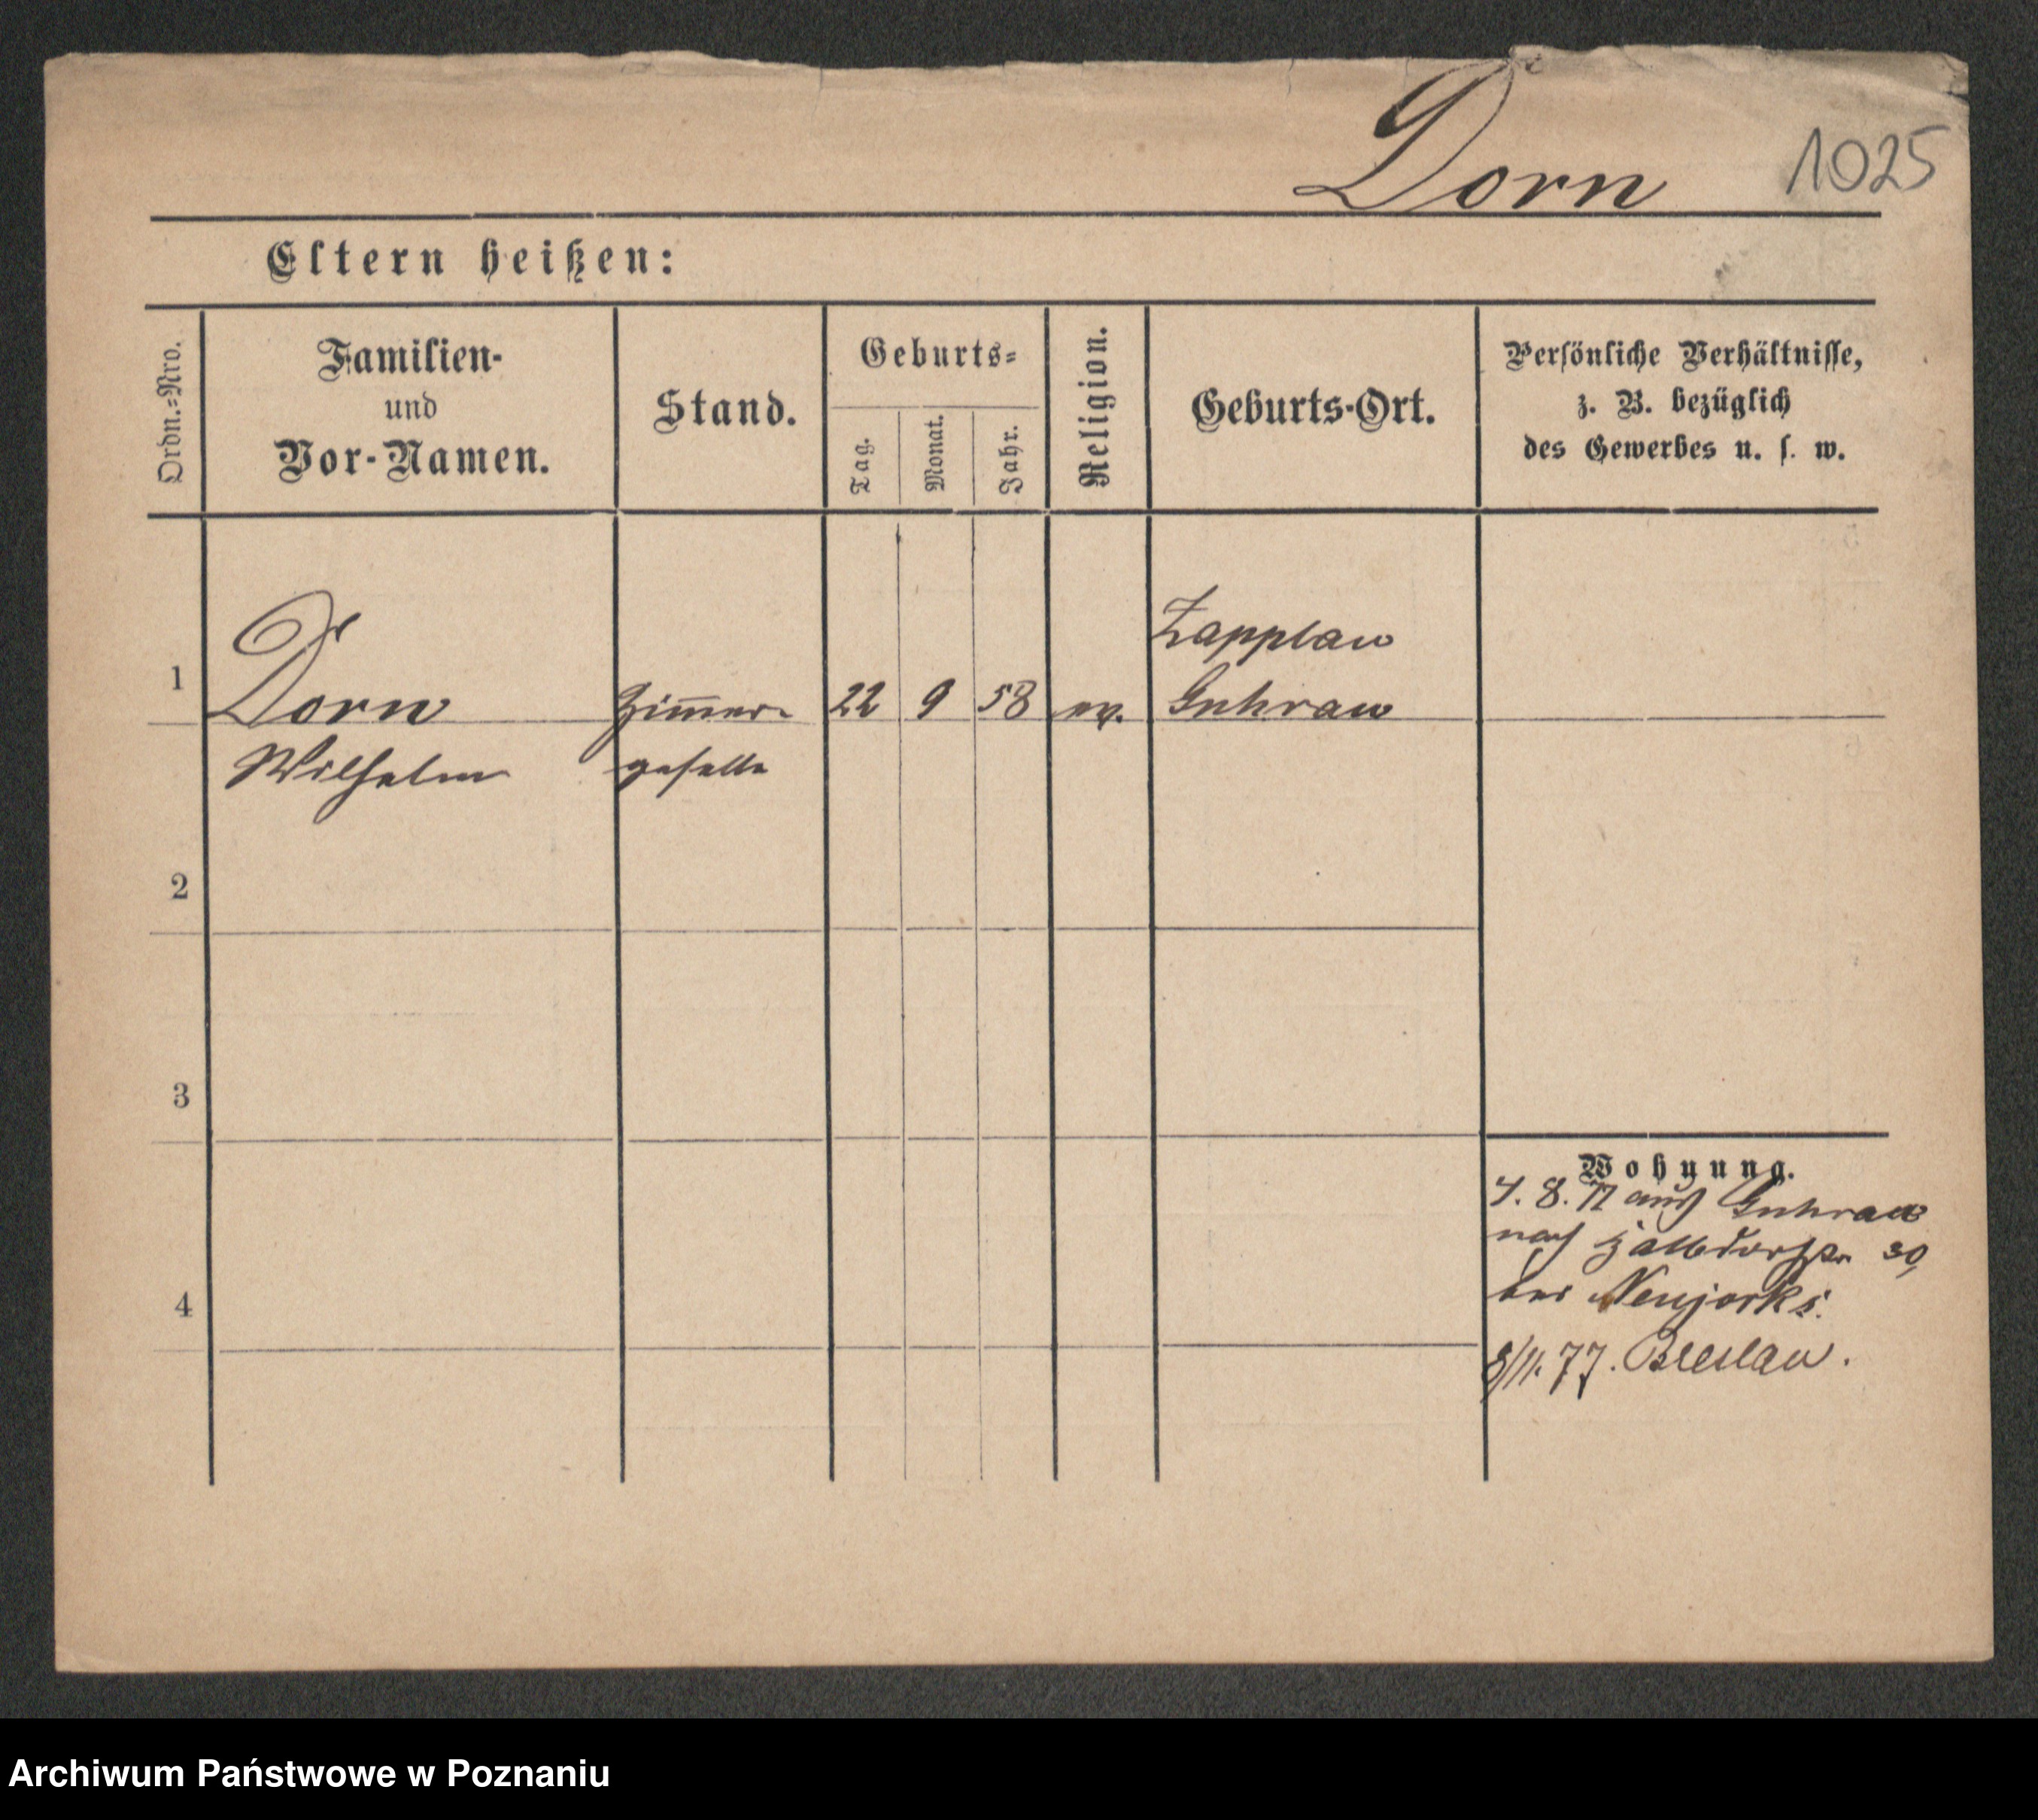 Dorn 1025
Eltern heißen:
Ordn.=Nro.
Familien-
und
Vor-Namen.
Stand.
Geburts=
Tag.
Monat.
Jahr.
Religion.
Geburts-Ort.
Persönliche Verhältnisse,
z. B. bezüglich
des Gewerbes u. s. w.
Zapplau
1 Dorn Zim̅er- 22 9 58 ev. Guhrau
Wilhelm geselle
2
3
Wohnung.
4. 8. 77 aus Guhrau
nach 30,
bei
4
8/11. 77. Breslau.
Archiwum Państwowe w Poznaniu